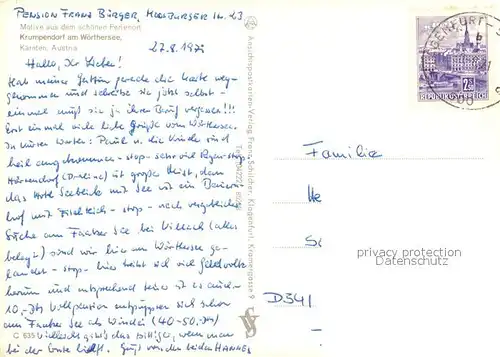 PENSION FRANZ BÜRGER, MOOSBURGER STR. 23
Motive aus dem schönen Ferienort
Krumpendorf am Wörthersee,
Kärnten, Austria
27.8.1971
Hallo, Ihr Lieben!
Hab meiner Gattin gerade die Karte weg-
genommen und schreibe sie jetzt selbst -
einmal muß sie ja ihren Beruf vergessen!!!
Erst einmal viele liebe Grüße vom Wörthersee.
In kurzen Worten: Paul u. die Kinder sind
heil angekommen - stop - sehr viel Regen - stop -
ist großer Mist, denn
das Hotel Seeblick mit See ist ein Bauern-
hof mit Fischteich - stop - nach vergeblicher
Suche am Faaker See bei Villach (alles
belegt) sind wir hier am Wörthersee ge-
landet - stop - hier treibt sich viel Geldvolk
herum und entsprechend teuer ist es auch -
10,- Vollpension entpuppten sich schon
am Faaker See als Windei (40-50,- DM)
Vielleicht geht's das billiger, wenn man
bei der Ernte hilft. Gruß von den beiden HANNES
C 635
Ansichtspostkarten-Verlag Franz Schilcher, Klagenfurt, Kramergasse 9
KLAGENFURT
REPUBLIK ÖSTERREICH
Familie
He
D 541
privacy protection
DATENSCHUTZ